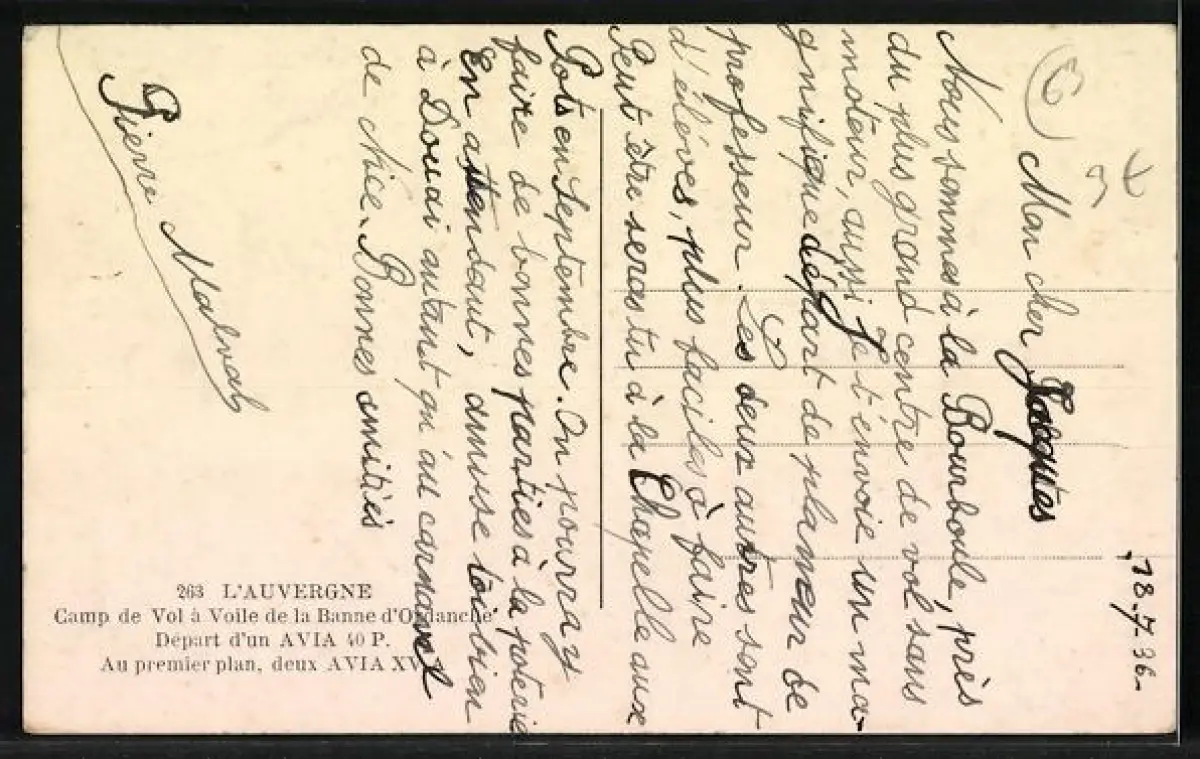 18.7.36-
Mon cher Jacques
Nous sommes à la Bourboule, près
du plus grand centre de vol sans
moteur, aussi je t'envoie un ma-
gnifique départ de planeur de
professeur. Les deux autres sont
d'élèves, plus faciles à faire
Peut être seras tu à la Chapelle aux
Pots en Septembre. On pourray
faire de bonnes parties à la poterie
En attendant, amuse toi bien
à Douai autant qu'au carnaval
de Nice. Bonnes amitiés
Pierre
263 L'AUVERGNE
Camp de Vol à Voile de la Banne d'Ordanche
Départ d'un AVIA 40 P.
Au premier plan, deux AVIA XV